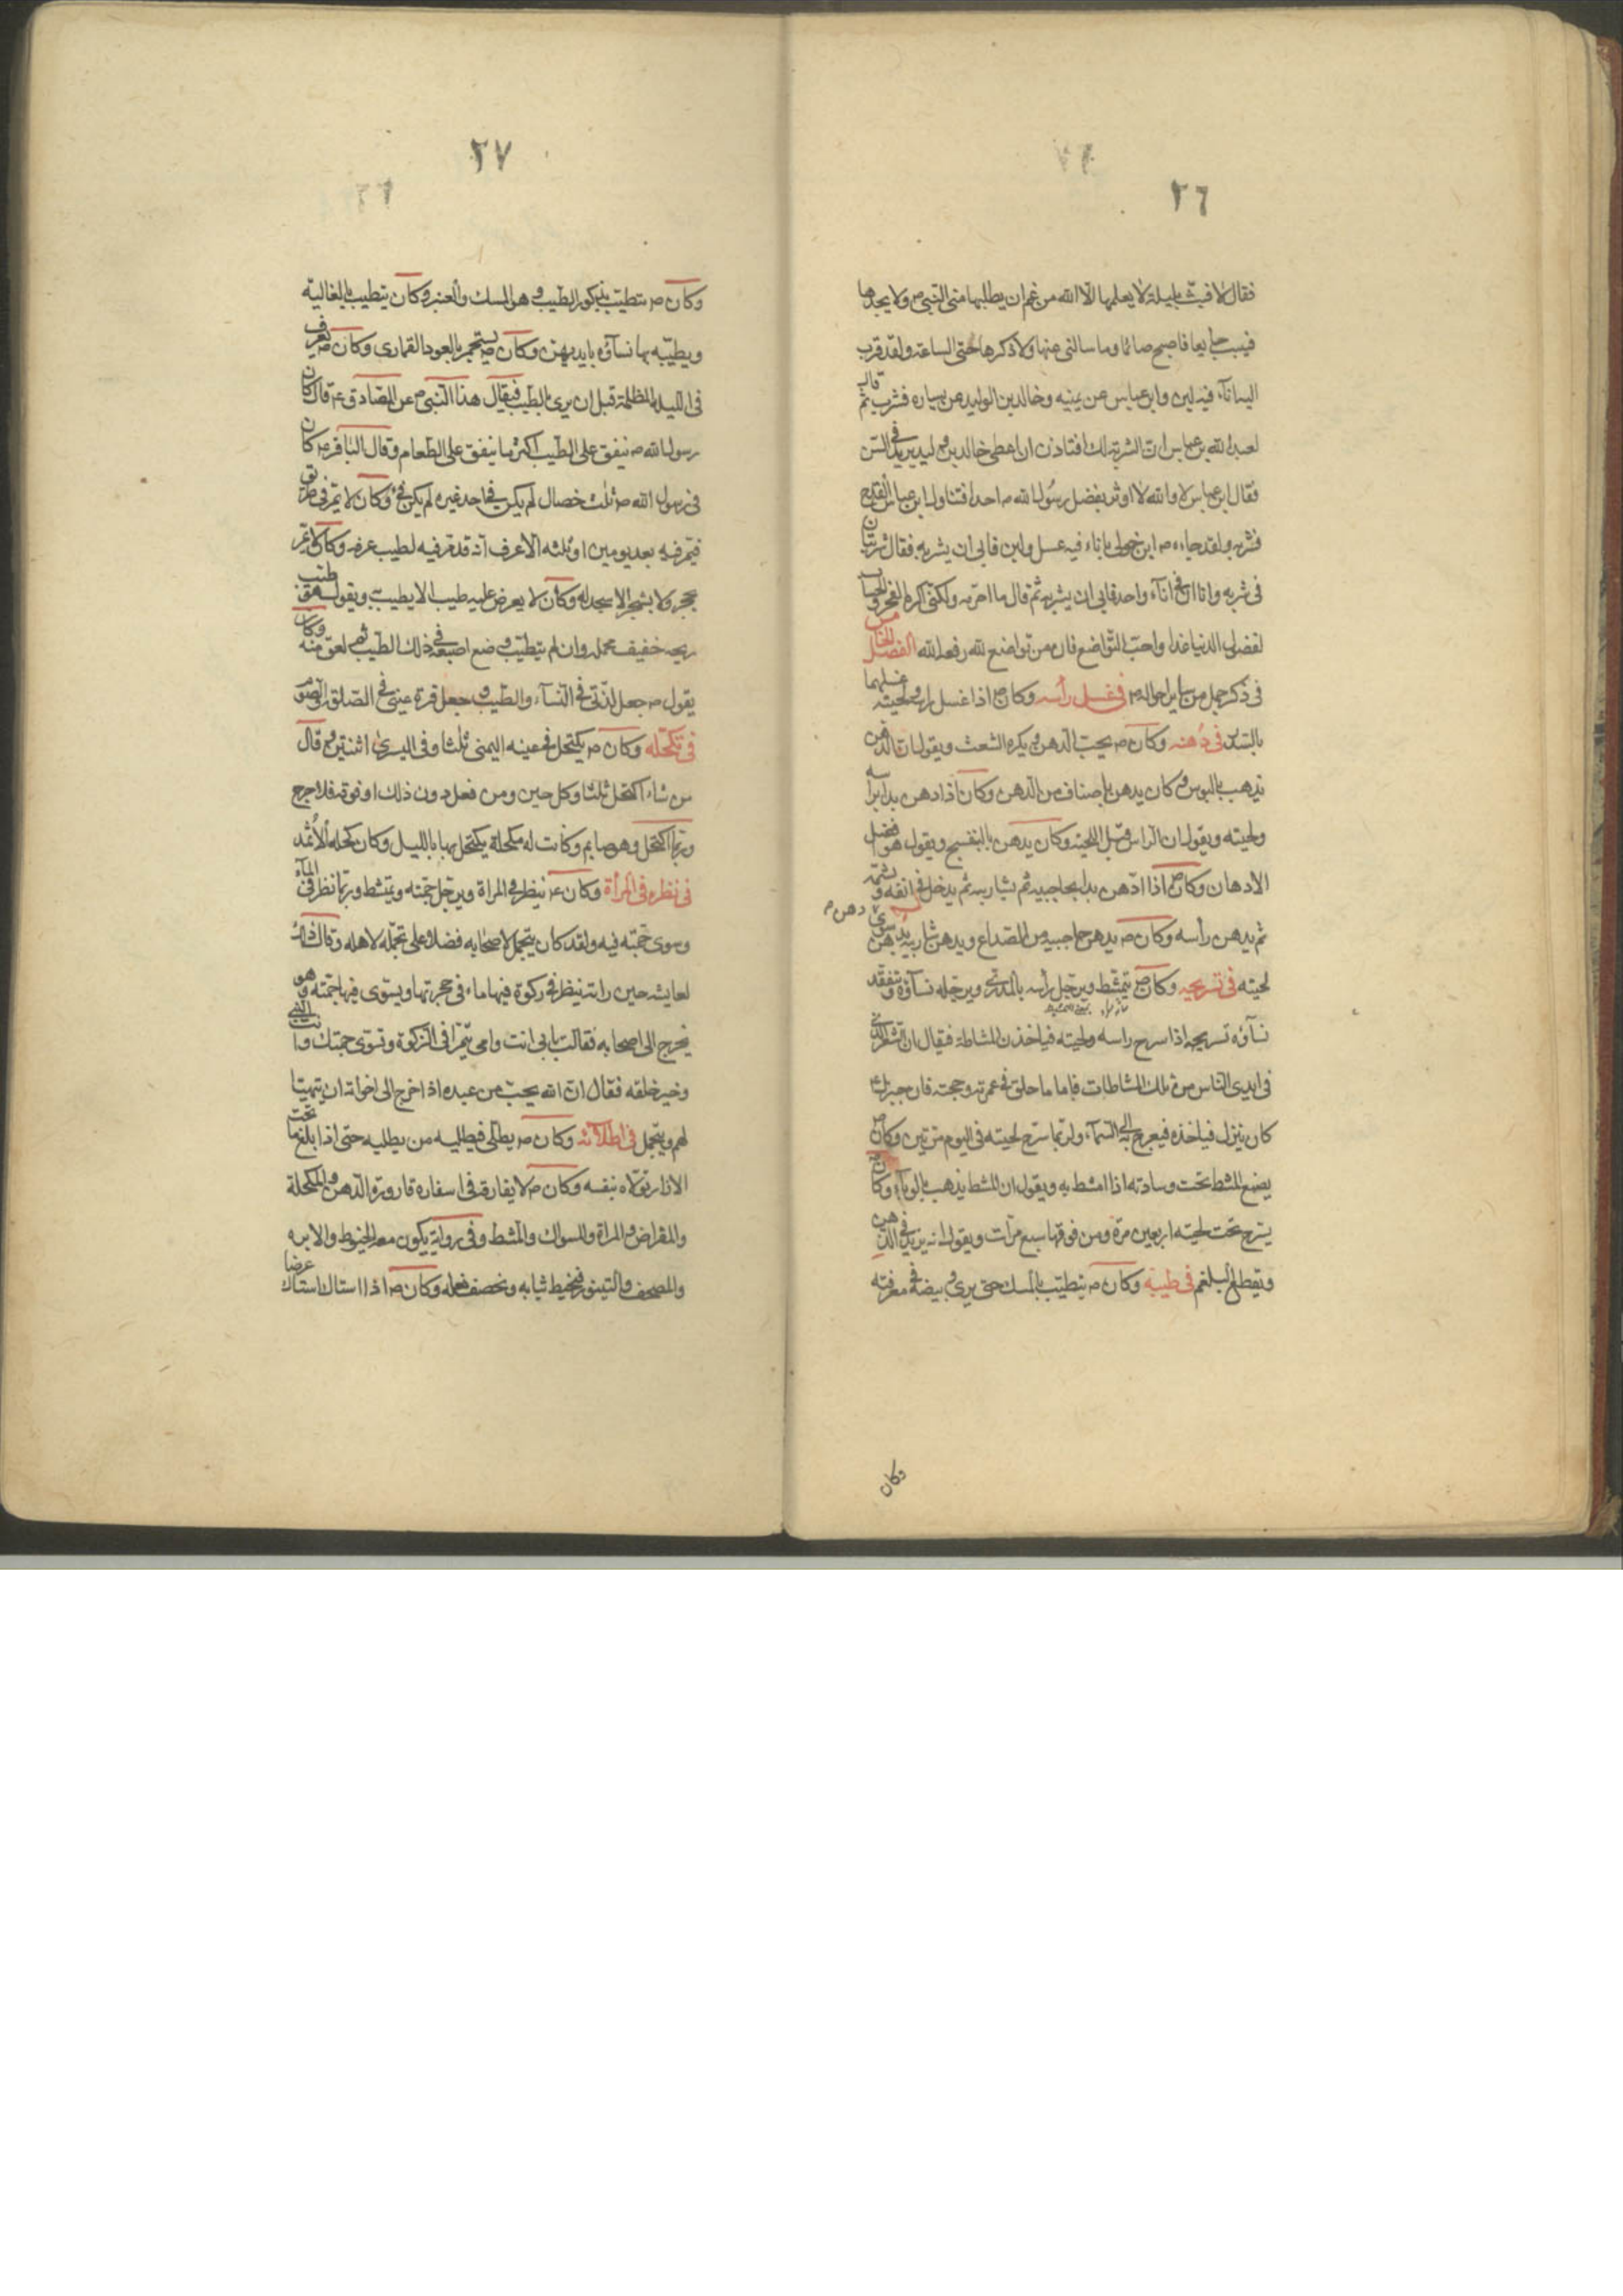 ٢٦
فقال لا فبت بليلة لا يعلمها الا الله من غم ان يطلبها مني النبي ص ولا يجدها
فيبيت جايعا فاصبح صائما وما سالني عنها ولا ذكرها حتى الساعة ولقد قرب
اليه اناء فيه لبن وابن عباس عن يمينه وخالد بن الوليد عن يساره فشرب ثم قال
لعبد الله بن عباس ان الشربة لك افتاذن ان اعطي خالد بن وليد يريد في السن
فقال ابن عباس لا والله لا اوثر بفضل رسول الله ص احدا فتناول ابن عباس القدح
فشربه ولقد جاءه ص ابن خولي باناء فيه عسل ولبن فابى ان يشربه فقال شربتان
في شربة واناان في اناء واحد فابى ان يشربه ثم قال ما احرمه ولكني اكره الفخر والحساب
لفضول الدنيا غدا واحب التواضع فان من تواضع لله رفعه الله الفصل الخامس
في ذكر جمل من سائر احواله ص في غسل رأسه وكان ص اذا غسل راسه ولحيته غسلهما
بالسدر في دهنه وكان ص يحب الدهن ويكره الشعث ويقول ان الدهن
يذهب بالبوس وكان يدهن باصناف من الدهن وكان اذا ادهن بدا براسه
ولحيته ويقول ان الراس قبل اللحية وكان يدهن بالبنفسج ويقول هو افضل
الادهان وكان ص اذا ادّهن بدا بحاجبيه ثم بشاربيه ثم يدخل في انفه ويشمه
ثم يدهن رأسه وكان ص يدهن حاجبيه من الصداع ويدهن شاربيه بدهن سوى دهن
لحيته في تسريحه وكان ص يتمشط ويرجل رأسه بالمدرى ويرجله نساؤه وتتفقد
نساؤه تسريحه اذا سرح راسه ولحيته فياخذن المشاطة فيقال ان الشعر الذي
في ايدي الناس من تلك المشاطات فاما ما حلق في عمرته وحجته فان جبرئيل
كان ينزل فياخذه فيعرج به الى السماء ولربما سرح لحيته في اليوم مرتين وكان ص
يضع المشط تحت وسادته اذا امشط به ويقول ان المشط يذهب بالوباء وكان
يسرح تحت لحيته اربعين مرة ومن فوقها سبع مرات ويقول انه يزيد في الذهن
ويقطع البلغم في طيبه وكان ص يتطيب بالمسك حتى يرى وبيضه في مفرقه
وكان
٢٧
وكان ص يتطيب بذكور الطيب وهو المسك والعنبر وكان يتطيب بالغالية
ويطيبه بها نساؤه بايديهن وكان ص يستجمر بالعود القماري وكان ص يعرف
في الليلة المظلمة قبل ان يرى بالطيب فيقال هذا النبي ص عن الصادق ع قال كان
رسول الله ص ينفق على الطيب اكثر ما ينفق على الطعام وقال الباقر ع كان
في رسول الله ص ثلث خصال لم يكن في احد غيره لم يكن له فئ وكان لا يمر في طريق
فيمر فيه بعد يومين او ثلثة الا عرف انه قد مر فيه لطيب عرفه وكان لا يمر
بحجر ولا بشجر الا سجد له وكان لا يعرض عليه طيب الا يطيب به ويقول هو طيب
ريحه خفيف محمله وان لم يتطيب وضع اصبعه في ذلك الطيب ثم لعق منه وكان
يقول ص جعل لذتي في النساء والطيب وجعل قرة عيني في الصلوة والصوم
في تكحله وكان ص يكتحل في عينه اليمنى ثلثا وفي اليسرى اثنتين وقال
من شاء اكتحل ثلثا وكل حين ومن فعل دون ذلك او فوقه فلا حرج
وربما اكتحل وهو صايم وكانت له مكحلة يكتحل بها بالليل وكان كحله الأثمد
في نظره في المرأة وكان ع ينظر في المراة ويرجل جمته ويمتشط وربما نظر في الماء
وسوى جمته فيه ولقد كان يتجمل لاصحابه فضلا على تجمله لاهله وقال ذلك
لعايشه حين راته ينظر في ركوة فيها ماء في حجرتها ويسوي فيها جمته وهو
يخرج الى اصحابه فقالت بابي انت وامي تتمرا في الركوة وتسوي جمتك وانت النبي
وخير خلقه فقال ان الله يحب من عبده اذا خرج الى اخوانه ان يتهيئا
لهم ويتجمل في اطلائه وكان ص يطلى فيطليه من يطليه حتى اذا بلغ ما تحت
الازار تولاه بنفسه وكان ص لا يفارقه في اسفاره قارورة الدهن والمكحلة
والمقراض والمراة والسواك والمشط وفي رواية يكون معه الخيوط والابره
والمصحف والسيور فيخيط ثيابه ويخصف نعله وكان ص اذا استاك استاك عرضا